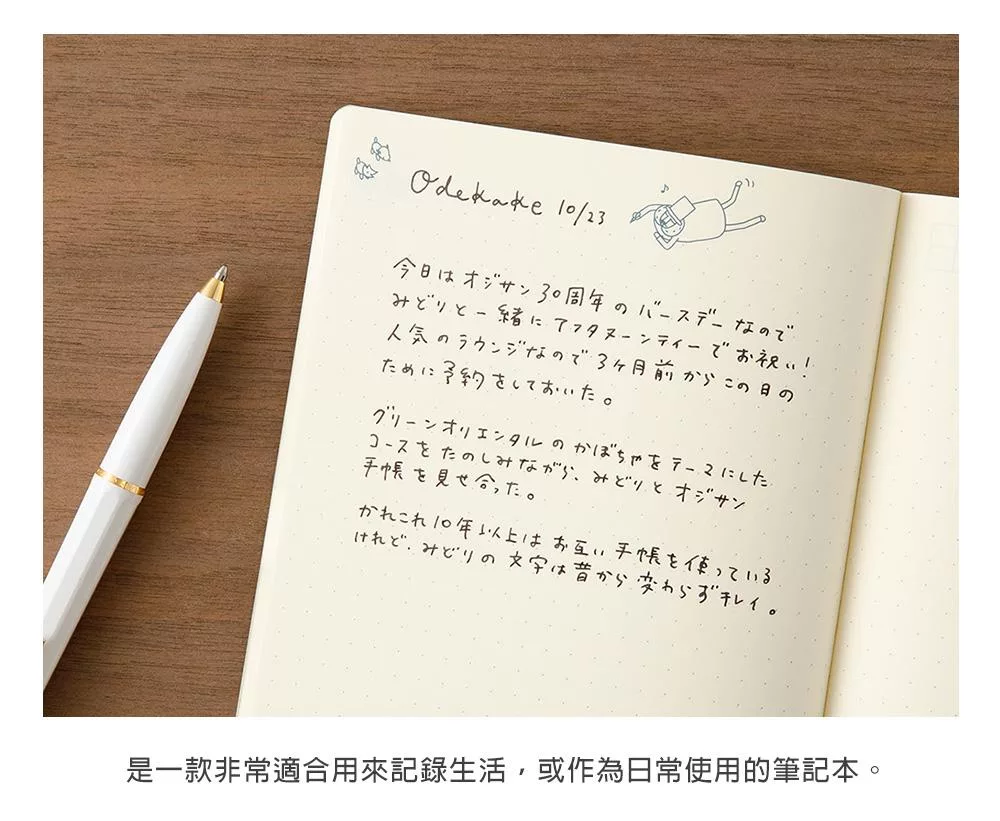 Odekake 10/23
今日はオジサン30周年のバースデーなので
みどりと一緒にアフタヌーンティーでお祝い！
人気のラウンジなので3ヶ月前からこの日の
ために予約をしておいた。
グリーンオリエンタルのかぼちゃをテーマにした
コースをたのしみながら、みどりとオジサン
手帳を見せ合った。
かれこれ10年以上はお互い手帳を使っている
けれど、みどりの文字は昔から変わらずキレイ。
是一款非常適合用來記錄生活，或作為日常使用的筆記本。